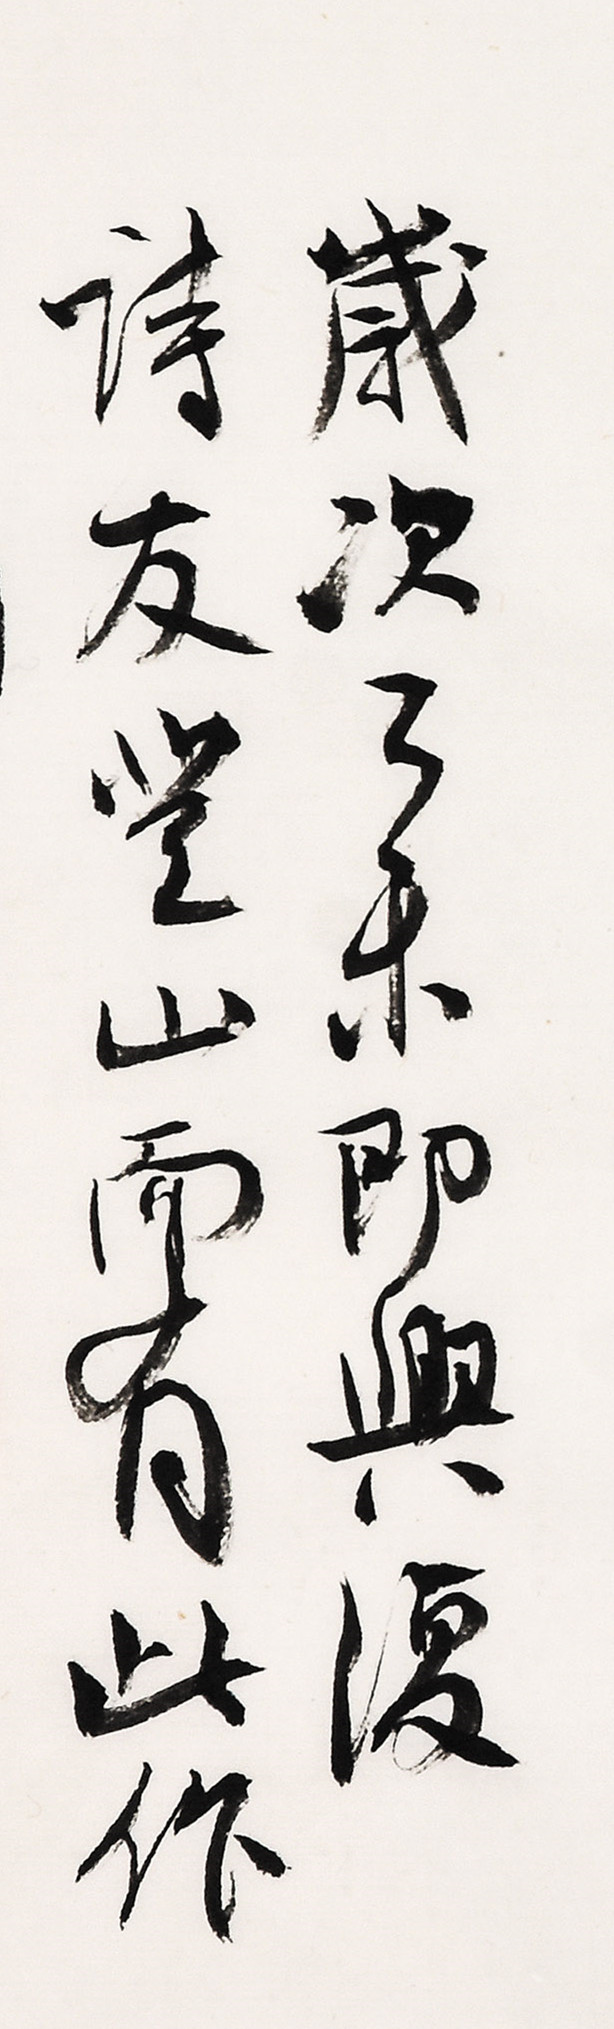 歲次未即興復
詩友登山而有此作